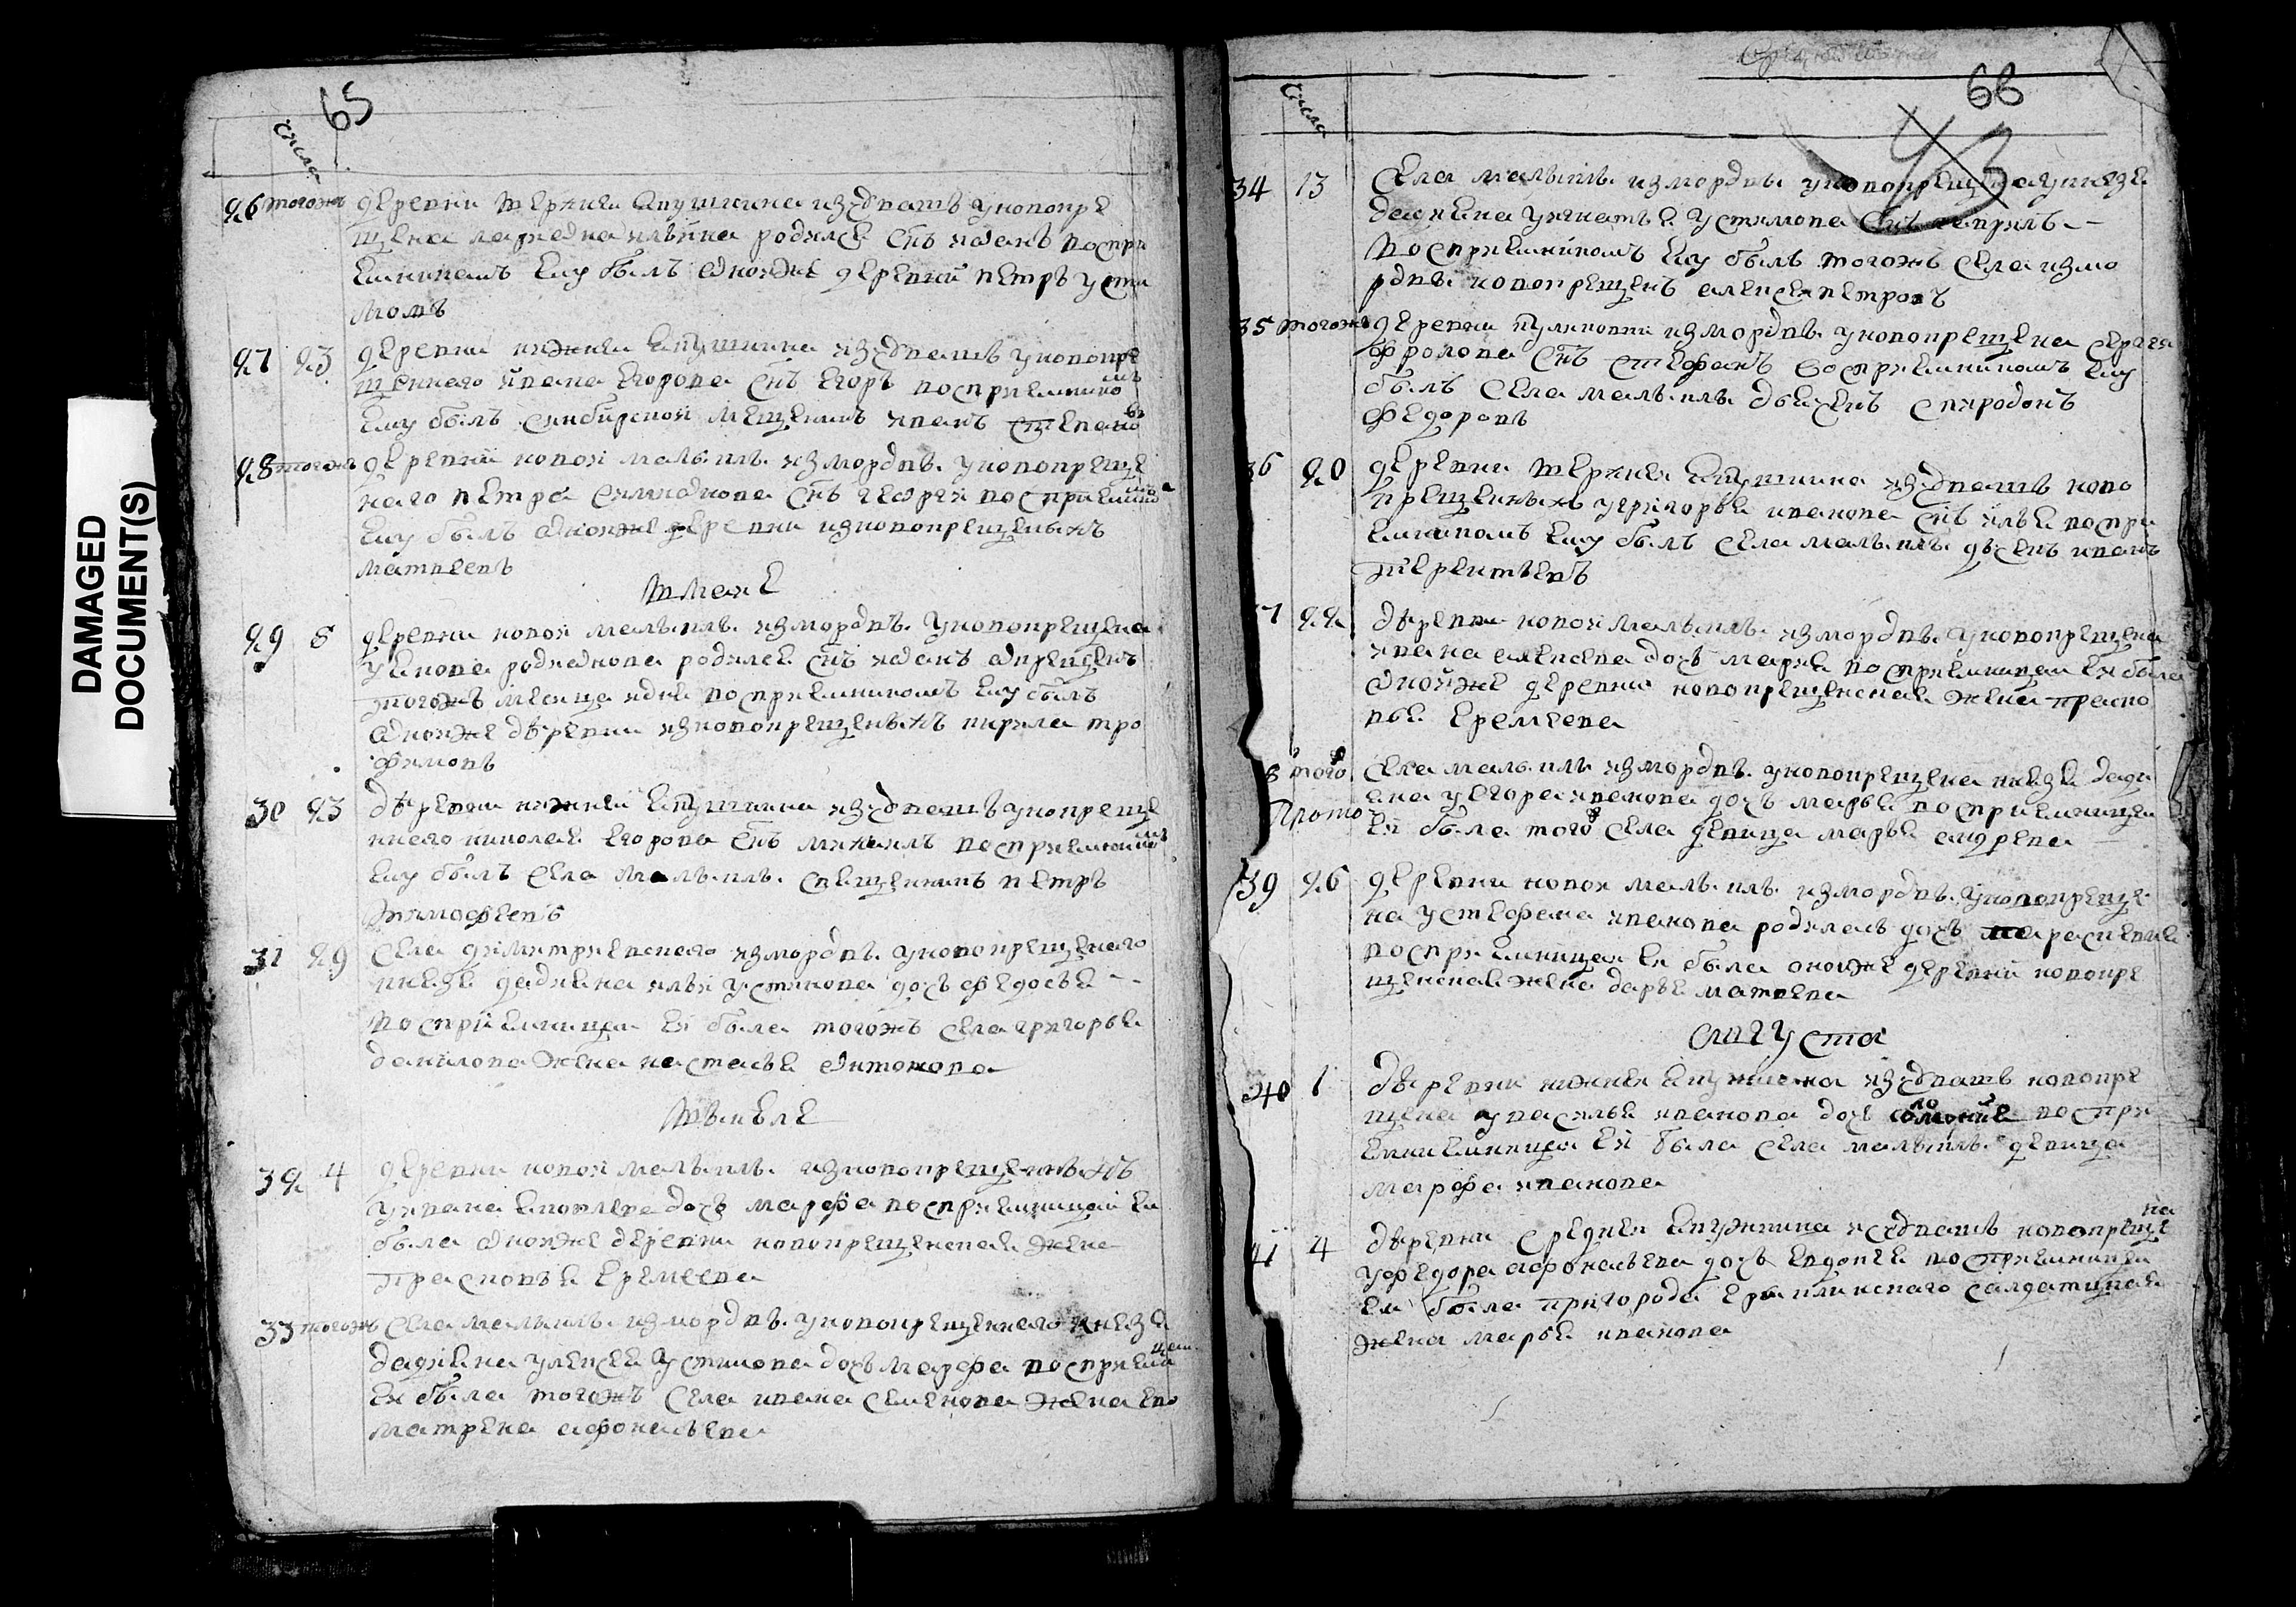 DAMAGED
DOCUMENT(S)
65
числа
26 тогожъ деревни верхней Якушкина изчювашъ уновокре
щена родился снъ иванъ воспри
емникомъ ему былъ оноиже деревни петръ усти
мовъ
27 23 деревни нижней Якушкина изчювашъ уновокре
щеннаго ивана егорова снъ егоръ восприемником
ему былъ синбирской мещенинъ иванъ степано
въ
28 тогожъ деревни новой малыклы измордвы уновокреще
наго петра снъ георги восприемнико
ему былъ оноиже деревни изновокрещеныхъ
матвеевъ
в мае
29 8 деревни новой малыклы измордвы уновокрещена
родионова родился снъ иванъ окрещенъ
тогожъ месяца дня восприемникомъ ему былъ
оноиже деревни изновокрещеныхъ кирила тро
фимовъ
30 23 деревни нижней Якушкина изчювашъ уновокреще
ннаго николая егорова снъ михаилъ восприемником
ему былъ села малыклы священникъ петръ
тимофеевъ
31 29 села димитриевскаго измордвы уновокрещенаго
князя дадикина ильи устинова дочь федосья
восприемница ей была тогожъ села григорья
данилова жена настасья онтонова
в июле
32 4 деревни новой малыклы изновокрещенныхъ
уивана яковлева дочь марфа восприемницей ей
была оноиже деревни новокрещенская жена
прасковья еремеева
33 тогожъ села малыклы измордвы уновокрещеннаго князя
дадикина улексея устинова дочь марфа восприемницеи
ей была тогожъ села ивана семенова жена ево
матрена афонасьева
66
числа
34 13 села малыклы измордвы уновокрещена князя
дадикина уигнатья устинова снъ кирилъ
восприемникомъ ему былъ тогожъ села измо
рдвы новокрещенъ алексей петровъ
35 тогожъ деревни измордвы уновокрещена сергея
фролова снъ стефанъ восприемникомъ ему
былъ села малыклы дьячекъ спиродонъ
федоровъ
36 20 деревни верхней Якушкина изчювашъ ново
крещеныхъ угригорья иванова снъ илья воспри
емникомъ ему былъ села малыклы дьячекъ иванъ
терентьевъ
37 22 деревни новой малыклы измордвы уновокрещена
ивана алексеева дочь марья восприемницеи ей была
оноиже деревни новокрещенская жена праско
вья еремеева
38 тогожъ села малыклы измордвы уновокрещена князя дади
кина уегора иванова дочь марья восприемницеи
ей была тогожъ села девица марья андреева
39 26 деревни новой малыклы измордвы уновокреще
на устефана иванова родилась дочь параскевия
восприемницеи ей была оноиже деревни новокре
щенская жена дарья матвеева
августа
40 1 деревни нижней Якушкина изчювашъ новокре
щена увасилья иванова дочь соломония воспри
емницеи ей была села малыклы девица
марфа иванова
41 4 деревни средней Якушкина исчювашъ новокреще
на
уфедора афонасьева дочь евдокея восприемницеи
ей была пригорода ерыклинскаго салдатцкая
жена марья иванова